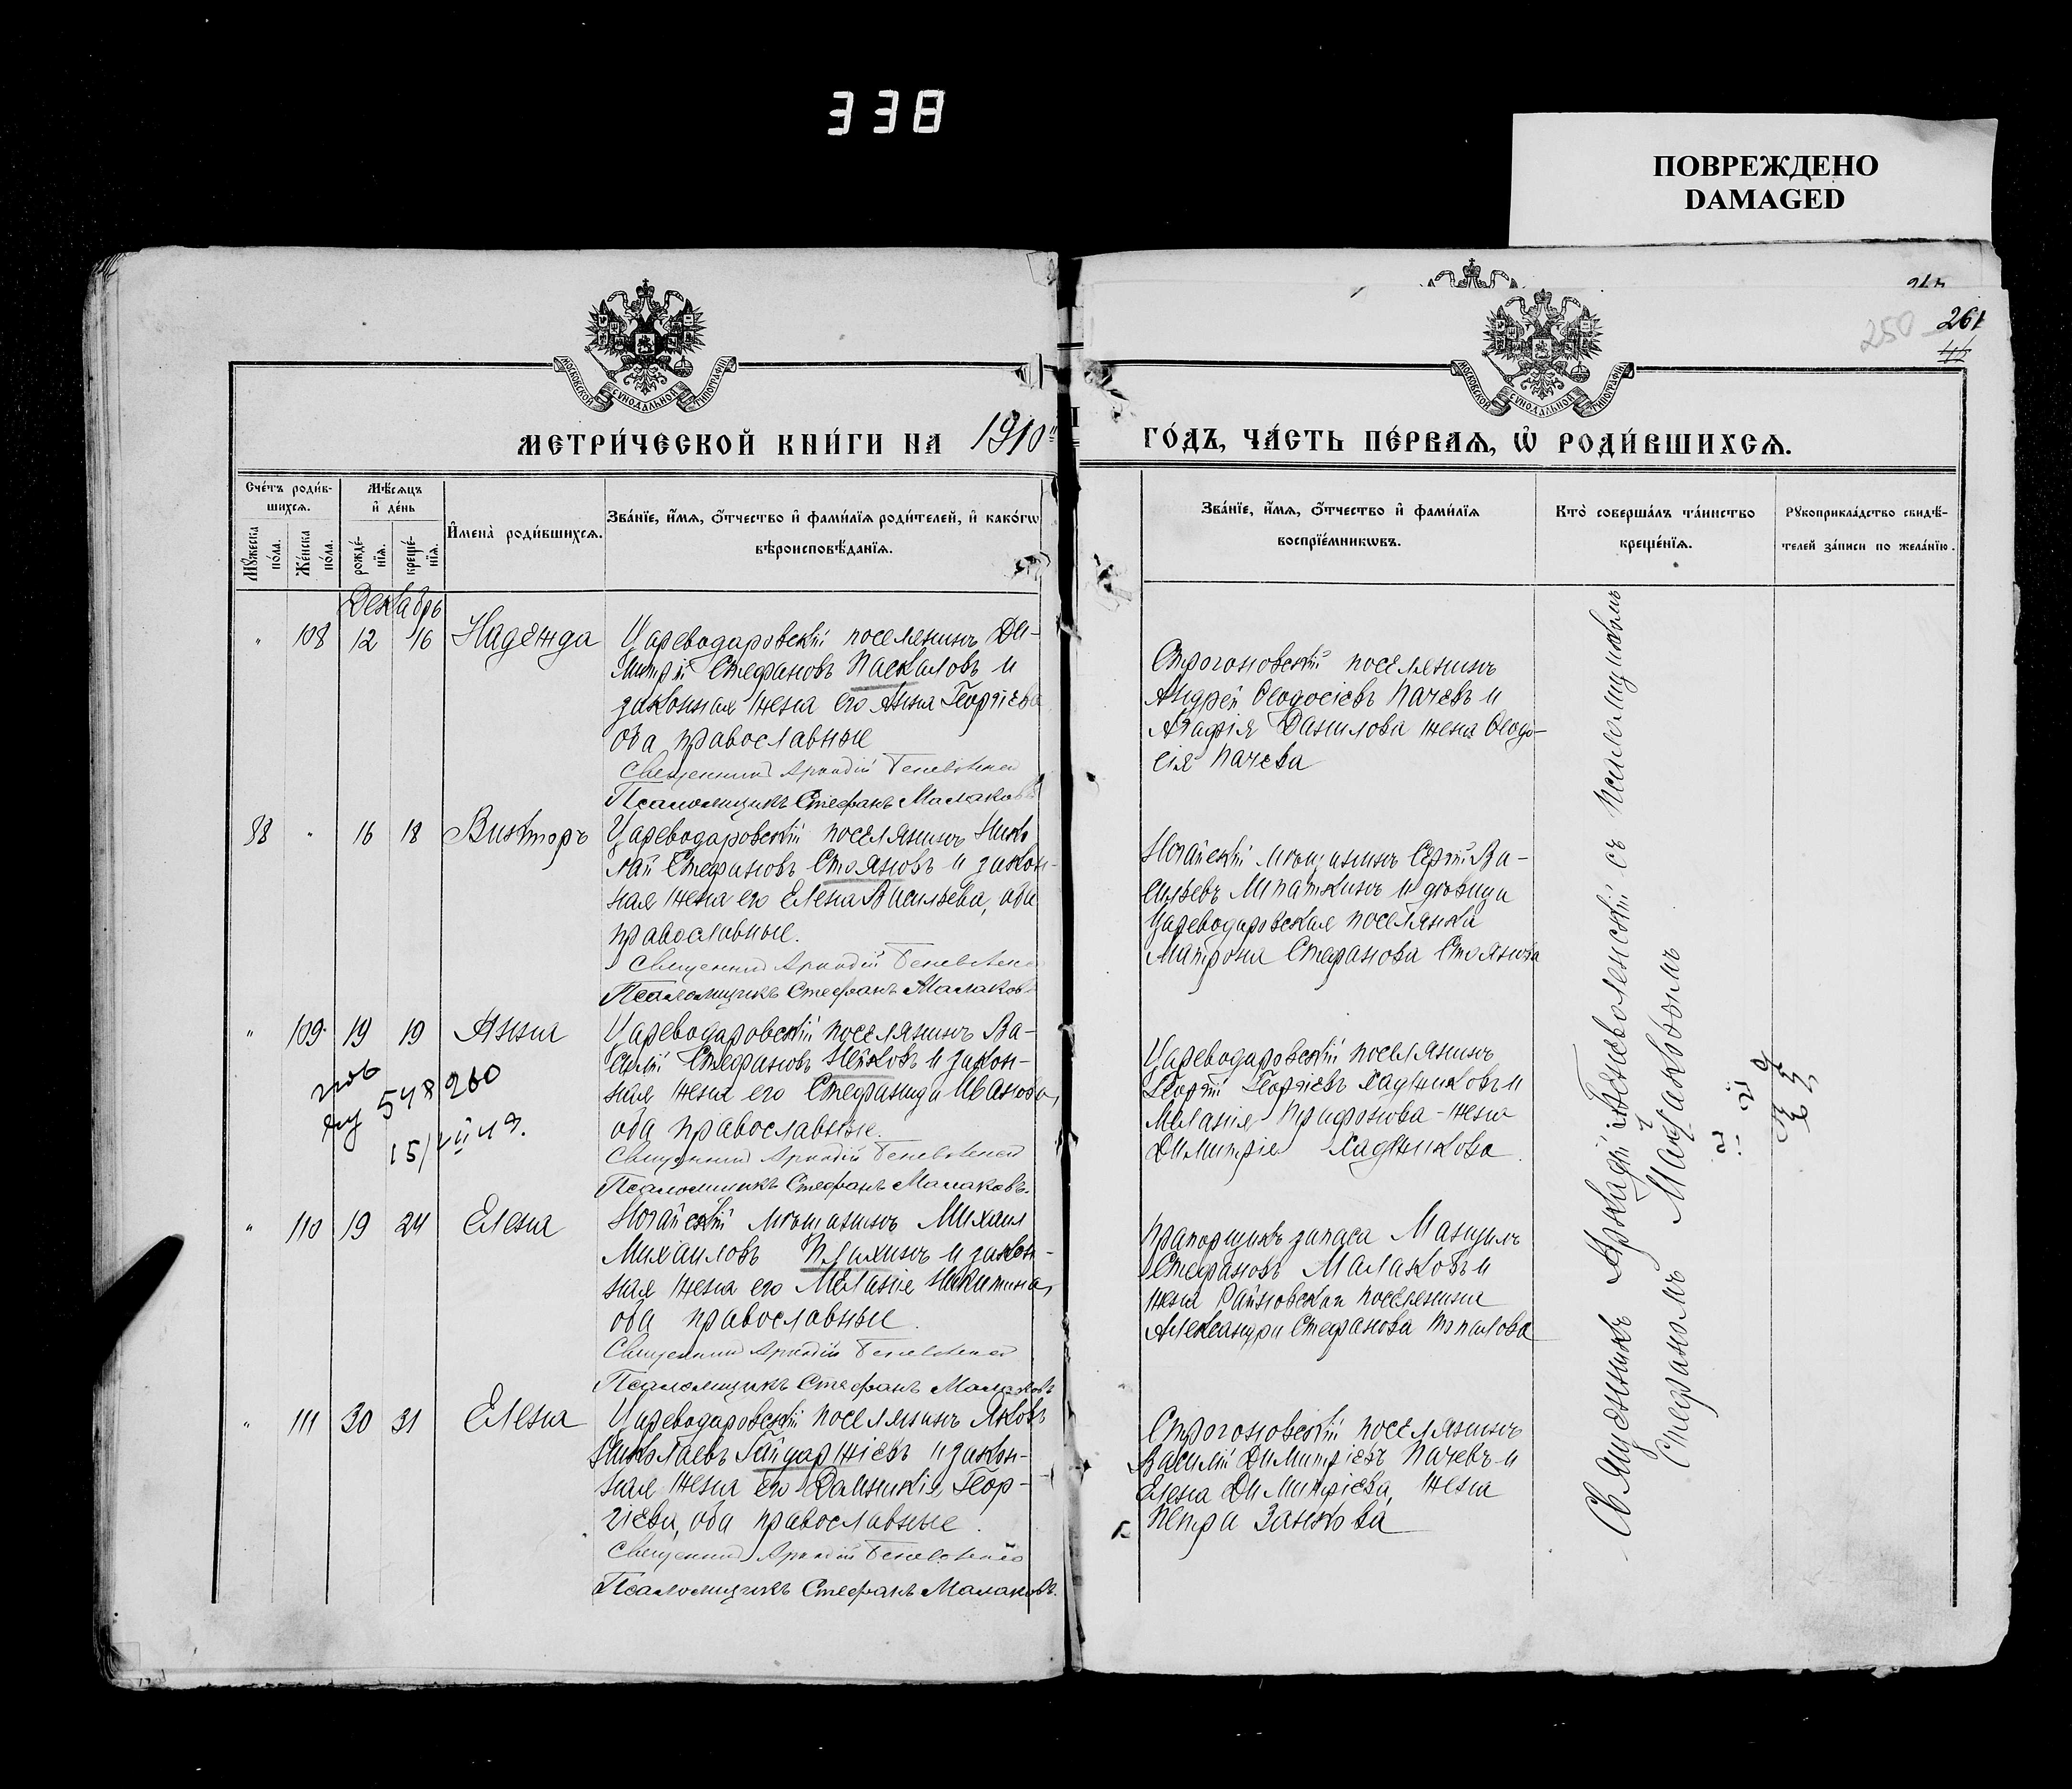 338
ПОВРЕЖДЕНО
DAMAGED
250 261
МОСКОВСКОЙ СѴНОДАЛЬНОЙ ТИПОГРАФІИ
МОСКОВСКОЙ СѴНОДАЛЬНОЙ ТИПОГРАФІИ
МЕТРИ́ЧЕСКОЙ КНИ́ГИ НА 1910
ГО́ДЪ, ЧА́СТЬ ПЕ́РВАЯ, Ѡ РОДИ́ВШИХСЯ.
Сче́тъ роди́в-
шихся.
Мꙋ́жеска по́ла.
Же́нска по́ла.
Мѣ́сяцъ
и҆ де́нь
рожде́-
нїя.
креще́-
нїя.
И҆мена̀ роди́вшихся.
Зва́нїе, и҆́мя, ѻ҆́тчество и҆ фами́лїя роди́телей, и҆ како́гѡ
вѣроисповѣ́данїя.
Зва́нїе, и҆́мя, ѻ҆́тчество и҆ фами́лїя
воспрїе́мникѡвъ.
Кто̀ соверша́лъ та́инство
креще́нїя.
Рꙋкоприкла́дство свидѣ́-
телей за́писи по жела́нїю.
Декабрь
" 108 12 16 Надежда
Цареводаровскій поселянинъ Ди-
митрій Стефановъ Паскаловъ и
законная жена его Анна Георгіева
оба православные
Священникъ Аркадій
Псаломщикъ Стефанъ Малаковъ
Строгоновскій поселянинъ
Андрей Ѳеодосіевъ Пачевъ и
Агафія Данилова жена Ѳеодо-
сія Пачева
88 " 16 18 Викторъ
Цареводаровскій поселянинъ Нико
лай Стефановъ Стояновъ и закон-
ная жена его Елена Васильева, оба
православные.
Священникъ Аркадій
Псаломщикъ Стефанъ Малаковъ
Ногайскій мѣщанинъ Сергій Ва-
сильевъ Липаткинъ и дѣвица
Цареводаровская поселянка
Матрона Стефанова Стоянова
" 109 19 19 Анна
Цареводаровскій поселянинъ Ва-
силій Стефановъ Нейковъ и закон-
ная жена его Стефанида Иванова,
оба православные.
Священникъ Аркадій
Псаломщикъ Стефанъ Малаковъ.
548260
Цареводаровскій поселянинъ
Георгій Георгіевъ Хаджиковъ и
Меланія Трифонова - жена
Димитрія Хаджикова.
" 110 19 24 Елена
Ногайскій мѣщанинъ Михаил
Михаиловъ и закон-
ная жена его Меланія Никитина,
оба православные.
Священникъ Аркадій
Псаломщикъ Стефанъ Малаковъ
Прапорщикъ запаса Мануилъ
Стефановъ Малаковъ и
жена Райновскаго поселянина
Александра Стефанова Топалова
" 111 30 31 Елена
Цареводаровскій поселянинъ Яковъ
Николаевъ Гайдаржіевъ и закон-
ная жена его Домникія Геор-
гіева, оба православные.
Священникъ Аркадій
Псаломщикъ Стефанъ Малаковъ.
Строгоновскій поселянинъ
Василій Димитріевъ Пачевъ и
Елена Димитріева, жена
Петра Занкова
Священникъ Аркадій съ псаломщикомъ
Стефаномъ Малаковымъ